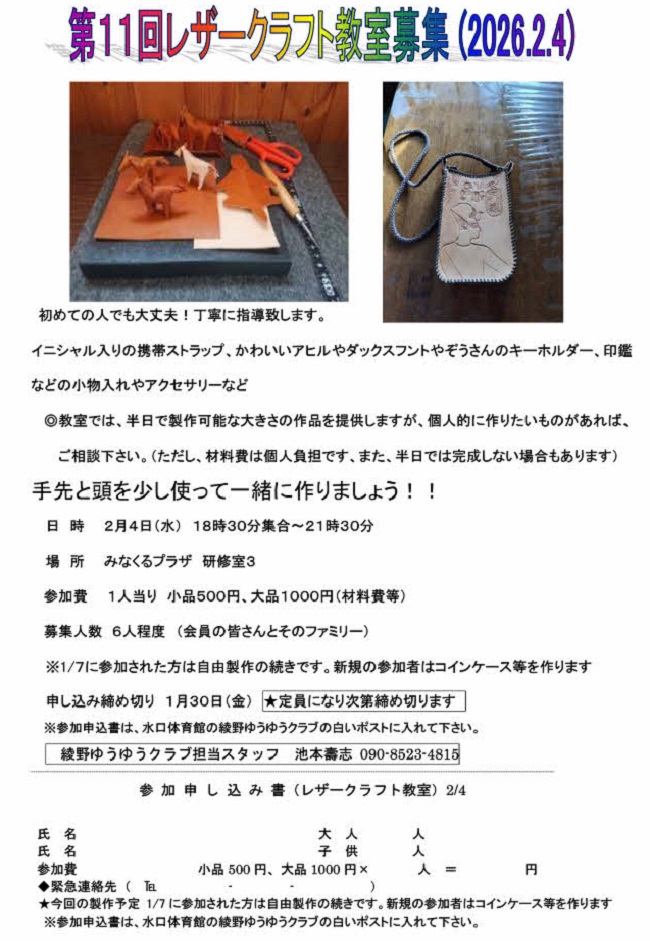 第11回レザークラフト教室募集(2026.2.4)
初めての人でも大丈夫！丁寧に指導致します。
イニシャル入りの携帯ストラップ、かわいいアヒルやダックスフントやぞうさんのキーホルダー、印鑑
などの小物入れやアクセサリーなど
◎教室では、半日で製作可能な大きさの作品を提供しますが、個人的に作りたいものがあれば、
ご相談下さい。（ただし、材料費は個人負担です、また、半日では完成しない場合もあります）
手先と頭を少し使って一緒に作りましょう！！
日 時 2月4日（水） 18時30分集合～21時30分
場 所 みなくるプラザ 研修室3
参加費 1人当り 小品500円、大品1000円（材料費等）
募集人数 6人程度 （会員の皆さんとそのファミリー）
※1/7に参加された方は自由製作の続きです。新規の参加者はコインケース等を作ります
申し込み締め切り 1月30日（金） ★定員になり次第締め切ります
※参加申込書は、水口体育館の綾野ゆうゆうクラブの白いポストに入れて下さい。
綾野ゆうゆうクラブ担当スタッフ 池本壽志 090-8523-4815
参 加 申 し 込 み 書（レザークラフト教室）2/4
氏 名 大 人 人
氏 名 子 供 人
参加費 小品 500 円、大品 1000 円× 人 ＝ 円
◆緊急連絡先（ ℡ - - ）
★今回の製作予定 1/7 に参加された方は自由製作の続きです。新規の参加者はコインケース等を作ります
※参加申込書は、水口体育館の綾野ゆうゆうクラブの白いポストに入れて下さい。